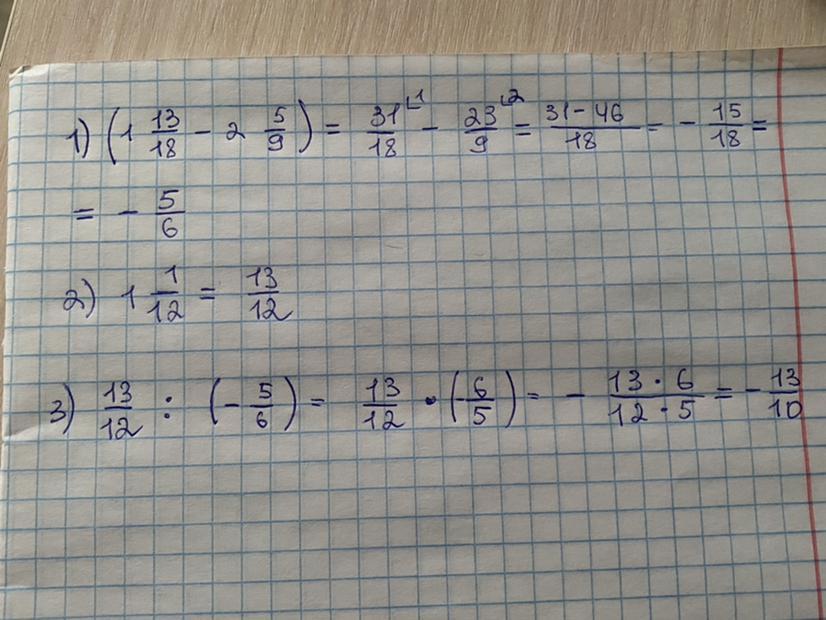 1) (1 13/18 - 2 5/9) = 31/18 ⌞1 - 23/9 ⌞2 = (31 - 46)/18 = - 15/18 =
= - 5/6
2) 1 1/12 = 13/12
3) 13/12 : (- 5/6) = 13/12 · (- 6/5) = - (13 · 6)/(12 · 5) = - 13/10